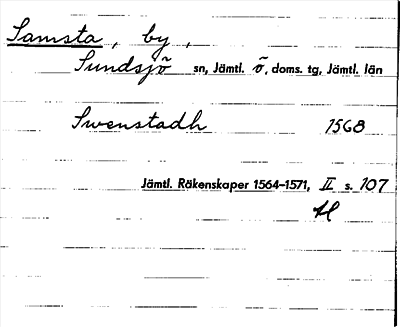 Samsta, by,
Sundsjö sn, Jämtl. ö, doms. tg, Jämtl. län
Swenstadh 1568
Jämtl. Räkenskaper 1564–1571, II s. 107